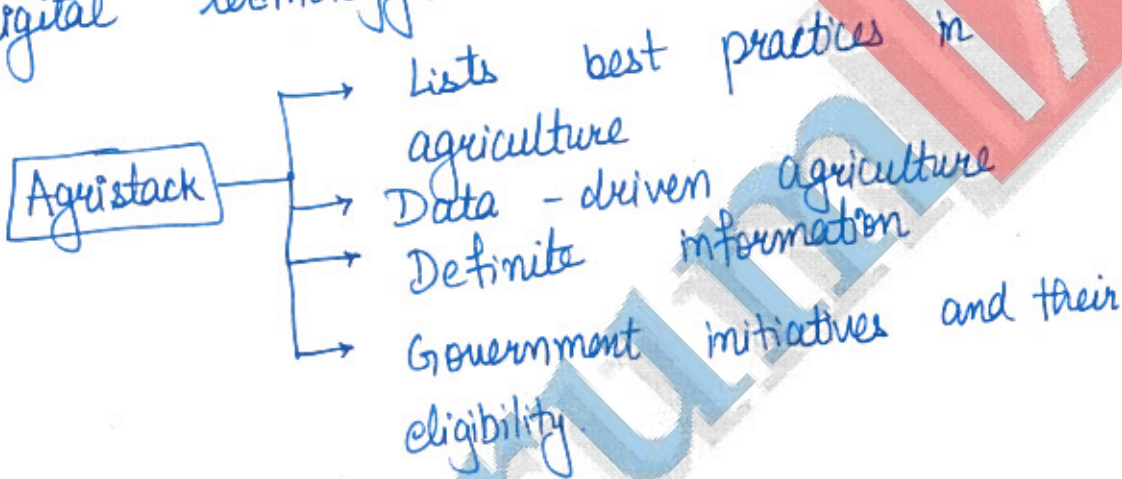 Lists best practices in
agriculture
Agristack
Data - driven agriculture
Definite information
Government initiatives and their
eligibility.